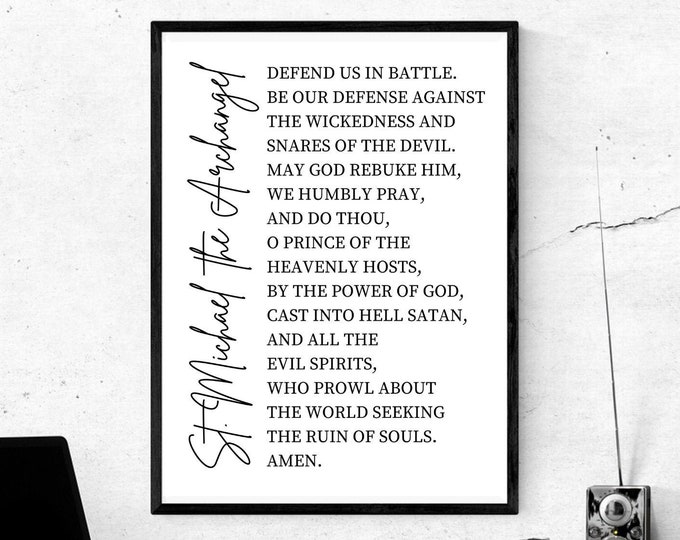 St. Michael the Archangel
DEFEND US IN BATTLE.
BE OUR DEFENSE AGAINST
THE WICKEDNESS AND
SNARES OF THE DEVIL.
MAY GOD REBUKE HIM,
WE HUMBLY PRAY,
AND DO THOU,
O PRINCE OF THE
HEAVENLY HOSTS,
BY THE POWER OF GOD,
CAST INTO HELL SATAN,
AND ALL THE
EVIL SPIRITS,
WHO PROWL ABOUT
THE WORLD SEEKING
THE RUIN OF SOULS.
AMEN.